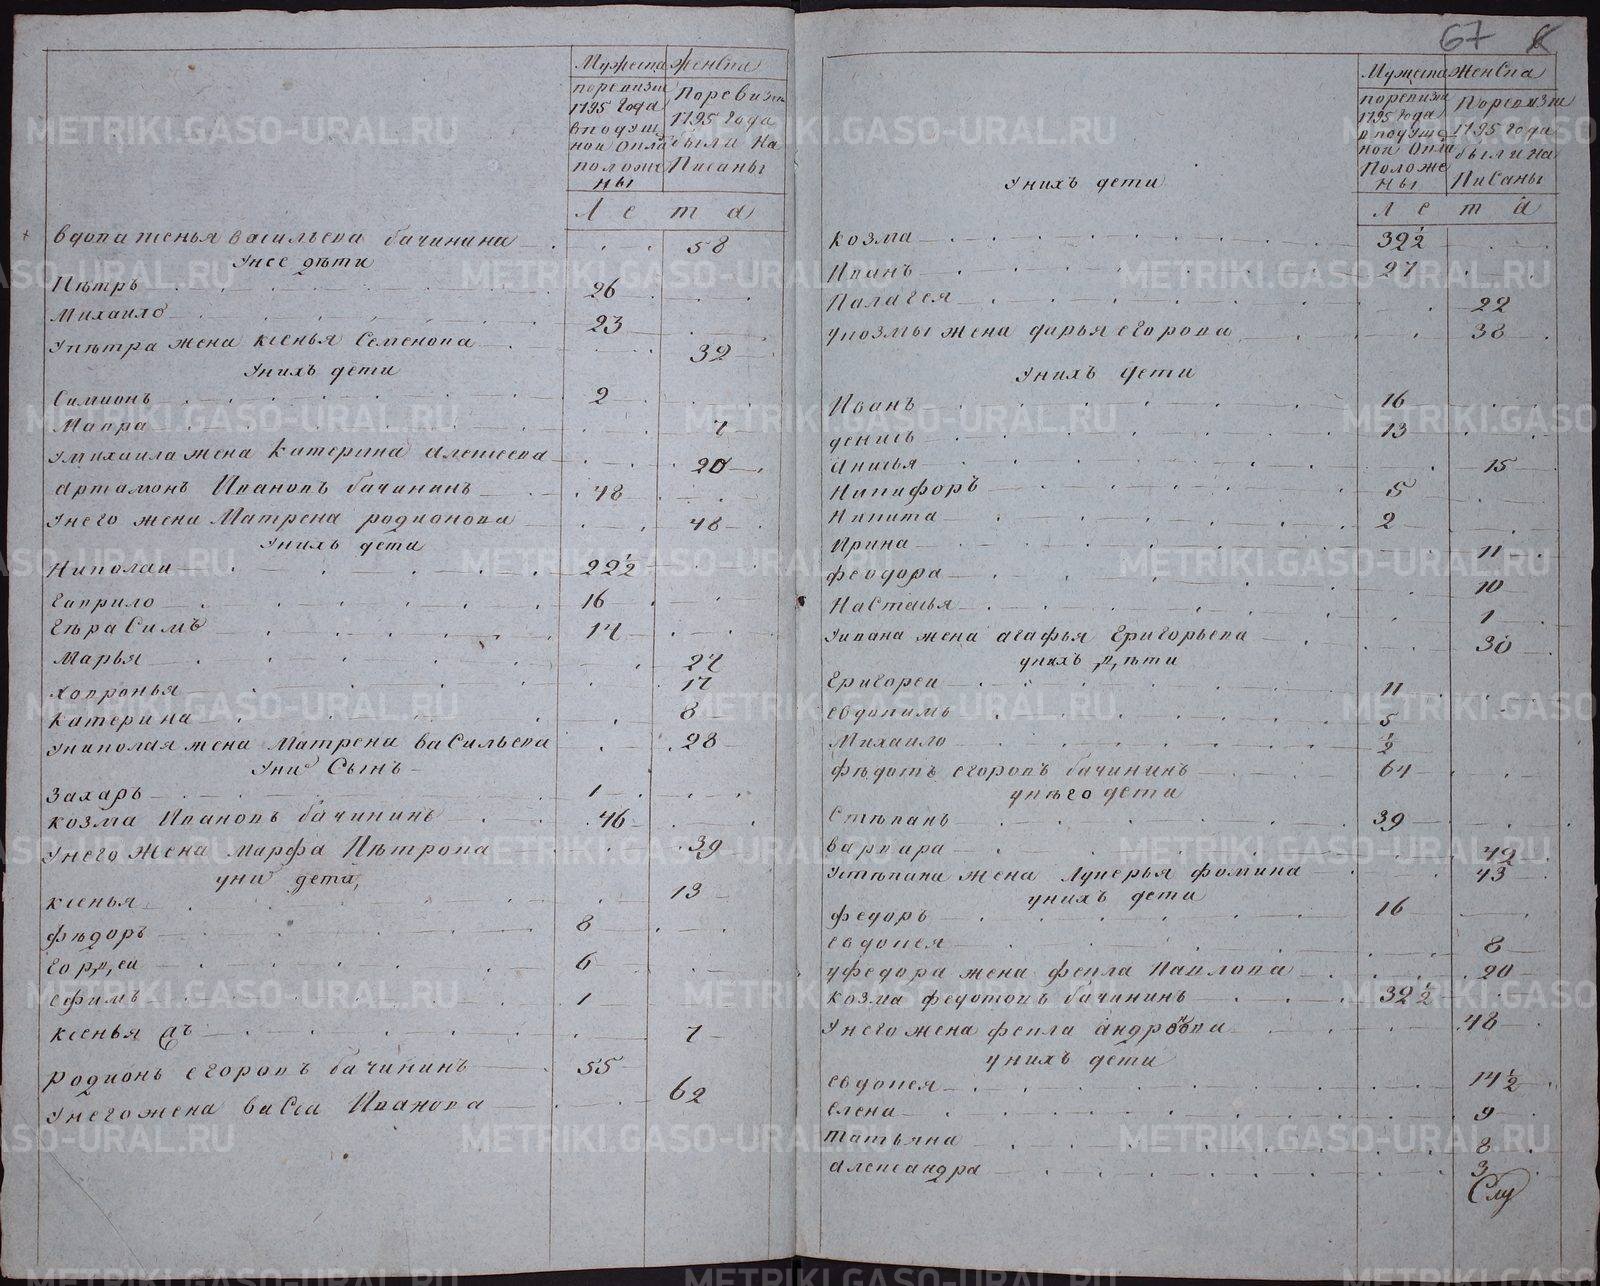 67
Мужеска Женска
поревизи
1795 года
в подуш
ной Окла
положе
ны
Поревизи
1795 года
были на
Писаны
Л е т а
вдова ксенья васильева бачинина 58
У нсе дѣти
Пѣтръ 26
Михаило 23
У пѣтра жена ксенья Семенова 32
У нихъ дети
Симионъ 2
Мавра 7
У михаила жена катерина алексеева 20
Артамонъ Ивановъ бачининъ 48
У него жена Матрена родионова 48
У нихъ дети
Николаи 22 1/2
Гаврило 16
Гѣрасимъ 14
Марья 27
ховронья 17
катерина 8
У николая жена Матрена васильева 28
У ни Сынъ
Захаръ 1
козма Ивановъ бачининъ 46
У него жена марфа Пѣтрова 39
у ни дети
ксенья 13
фѣдоръ 8
Горден 6
ефимъ 1
ксенья 7
родионъ егоровъ бачининъ 55
У него жена васса Иванова 62
Мужеска Женска
поревизи
1795 года
в подуш
ной Окла
Положе
ны
Поревизи
1795 года
были на
Писаны
Л е т а
У нихъ дети
козма 39 1/2
Иванъ 27
Палагея 22
у козмы жена дарья егорова 38
У нихъ дети
Иванъ 16
денисъ 13
Анисья 15
Никифоръ 5
Никита 2
Ирина 11
феодора 10
Настасья 1
У ивана жена агафья Григорьева 30
у нихъ дѣти
Григореи 11
евдокимъ 5
Михаило 1/2
фѣдотъ егоровъ бачининъ 64
у нѣго дети
Стѣпанъ 39
варвара 42
У стѣпана жена Лукерья фомина 43
у нихъ дети
федоръ 16
евдокея 8
у федора жена фекла Павлова 20
козма федотовъ бачининъ 32 1/2
У него жена фекла андрѣева 48
у нихъ дети
евдокея 14 1/2
елена 9
татьяна 8
александра 3
Слу
METRIKI.GASO-URAL.RU